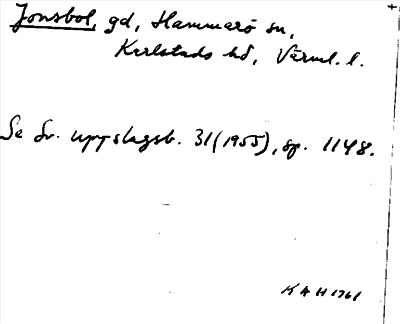 Jonsbol, gd, Hammarö sn,
Karlstads hd, Värml. l.
Se Sv. uppslagsb. 31(1955), sp. 1148.
K A H 1761